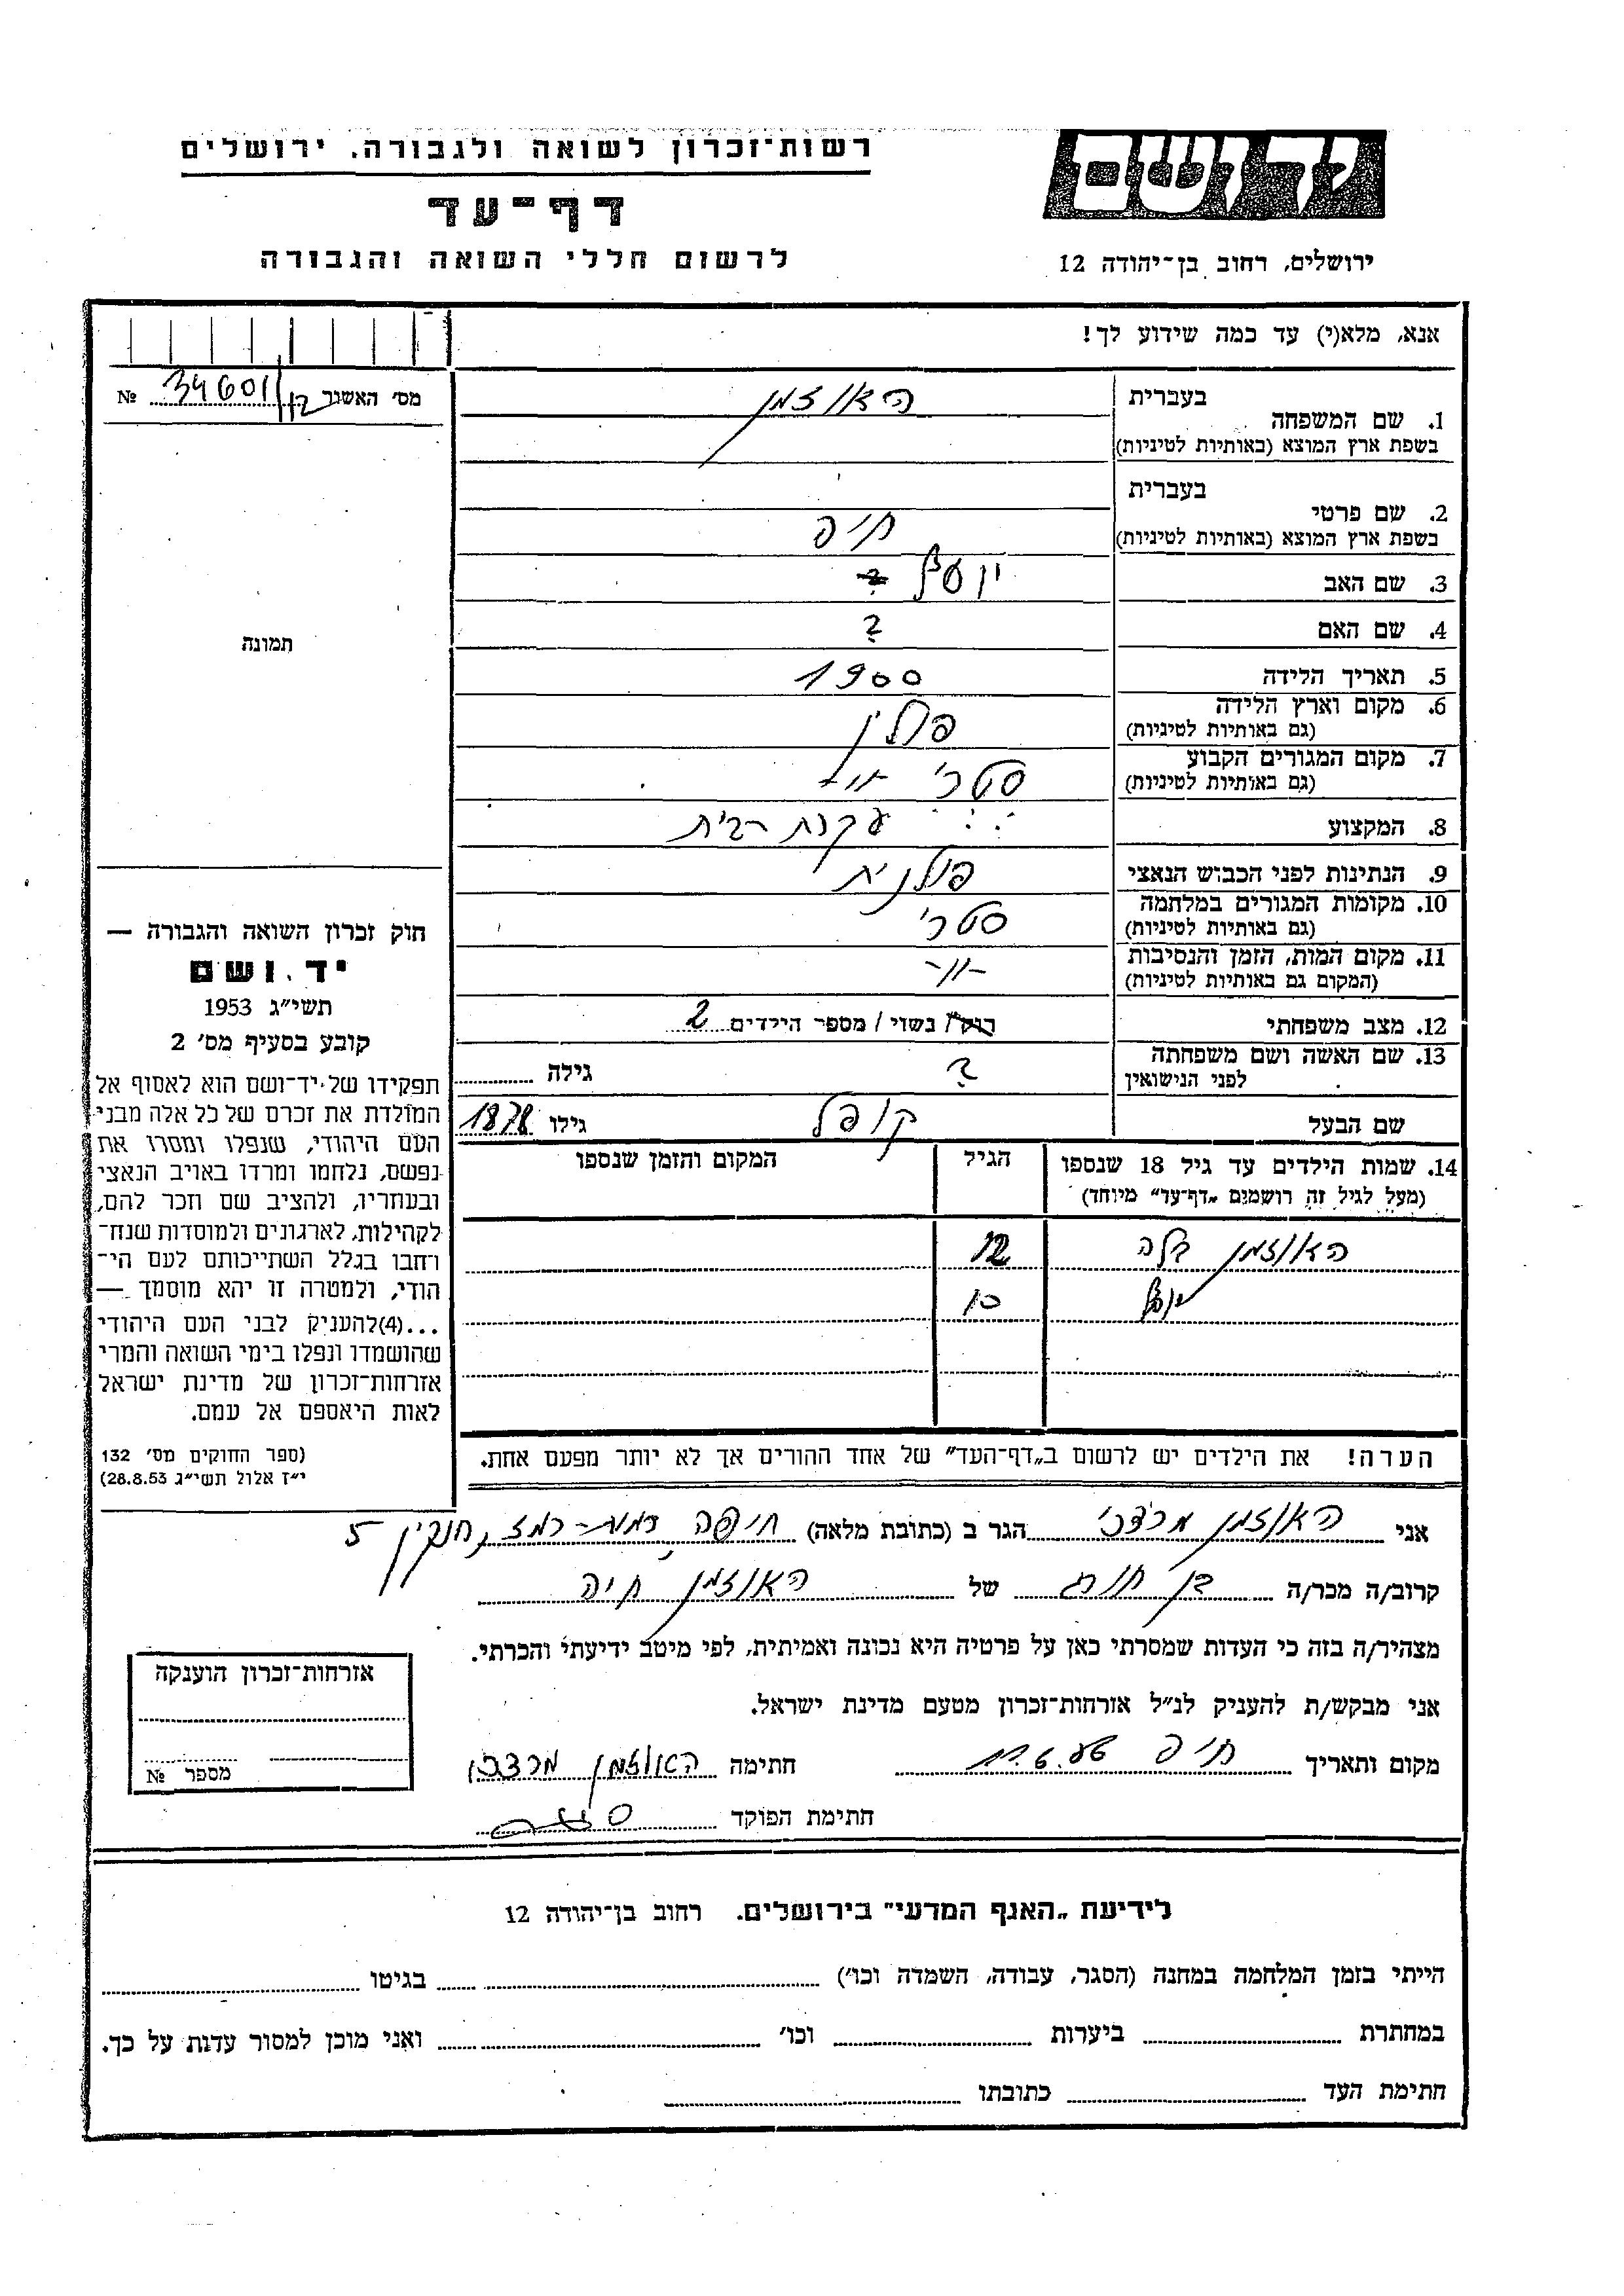 ידושם
רשות־זכרון לשואה ולגבורה, ירושלים
דף־עד
לרשום חללי השואה והגבורה
ירושלים, רחוב בן־יהודה 12
אנא, מלא(י) עד כמה שידוע לך!
מס' האשנר 34601/12 №
בעברית
1. שם המשפחה האוזמן
בשפת ארץ המוצא (באותיות לטיניות)
בעברית
2. שם פרטי
בשפת ארץ המוצא (באותיות לטיניות)
3. שם האב יוסף
4. שם האם ?
5. תאריך הלידה 1900
6. מקום וארץ הלידה פולין
(גם באותיות לטיניות)
7. מקום המגורים הקבוע סטרי
(גם באותיות לטיניות)
8. המקצוע עקרת בית
9. הנתינות לפני הכבוש הנאצי פולנית
10. מקומות המגורים במלחמה סטרי
(גם באותיות לטיניות)
11. מקום המות, הזמן והנסיבות -"-
(המקום גם באותיות לטיניות)
12. מצב משפחתי רווק / נשוי / מספר הילדים 2
13. שם האשה ושם משפחתה ? גילה
לפני הנישואין
שם הבעל קופל גילו 1878
14. שמות הילדים עד גיל 18 שנספו הגיל המקום והזמן שנספו
(מעל לגיל זה רושמים „דף־עד" מיוחד)
האוזמן בלה 12
10
הערה! את הילדים יש לרשום ב„דף־העד" של אחד ההורים אך לא יותר מפעם אחת.
תמונה
חוק זכרון השואה והגבורה —
יד ושם
תשי"ג 1953
קובע בסעיף מס' 2
תפקידו של יד־ושם הוא לאסוף אל
המולדת את זכרם של כל אלה מבני
העם היהודי, שנפלו ומסרו את
נפשם, נלחמו ומרדו באויב הנאצי
ובעוזריו, ולהציב שם וזכר להם,
לקהילות, לארגונים ולמוסדות שנח־
רחבו בגלל השתייכותם לעם הי־
הודי, ולמטרה זו יהא מוסמך —
...(4)להעניק לבני העם היהודי
שהושמדו ונפלו בימי השואה והמרי
אזרחות־זכרון של מדינת ישראל
לאות היאספם אל עמם.
(ספר החוקים מס' 132
י"ז אלול תשי"ג 28.8.53)
אני האוזמן מרדכי הגר ב (כתובת מלאה) חיפה רמת-רמז, חנקין 5
קרוב/ה מכר/ה בן חורג של האוזמן חיה
מצהיר/ה בזה כי העדות שמסרתי כאן על פרטיה היא נכונה ואמיתית, לפי מיטב ידיעתי והכרתי.
אני מבקש/ת להעניק לנ"ל אזרחות־זכרון מטעם מדינת ישראל.
מקום ותאריך חתימה האוזמן מרדכי
חתימת הפוקד
אזרחות־זכרון הוענקה
מספר №
לידיעת „האגף המדעי" בירושלים, רחוב בן־יהודה 12
הייתי בזמן המלחמה במחנה (הסגר, עבודה, השמדה וכו') בגיטו
במחתרת ביערות וכו' ואני מוכן למסור עדות על כך.
חתימת העד כתובתו